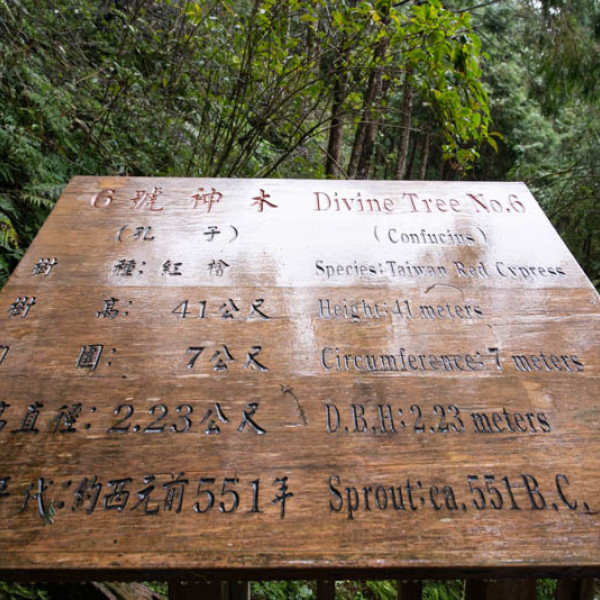 6號神木 Divine Tree No.6
(孔子) (Confucius)
樹種:紅檜 Species:Taiwan Red Cypress
樹高:41公尺 Height:41 meters
圍:7公尺 Circumference:7 meters
高直徑:2.23公尺 D.B.H:2.23 meters
年代:約西元前551年 Sprout:ca.551B.C.